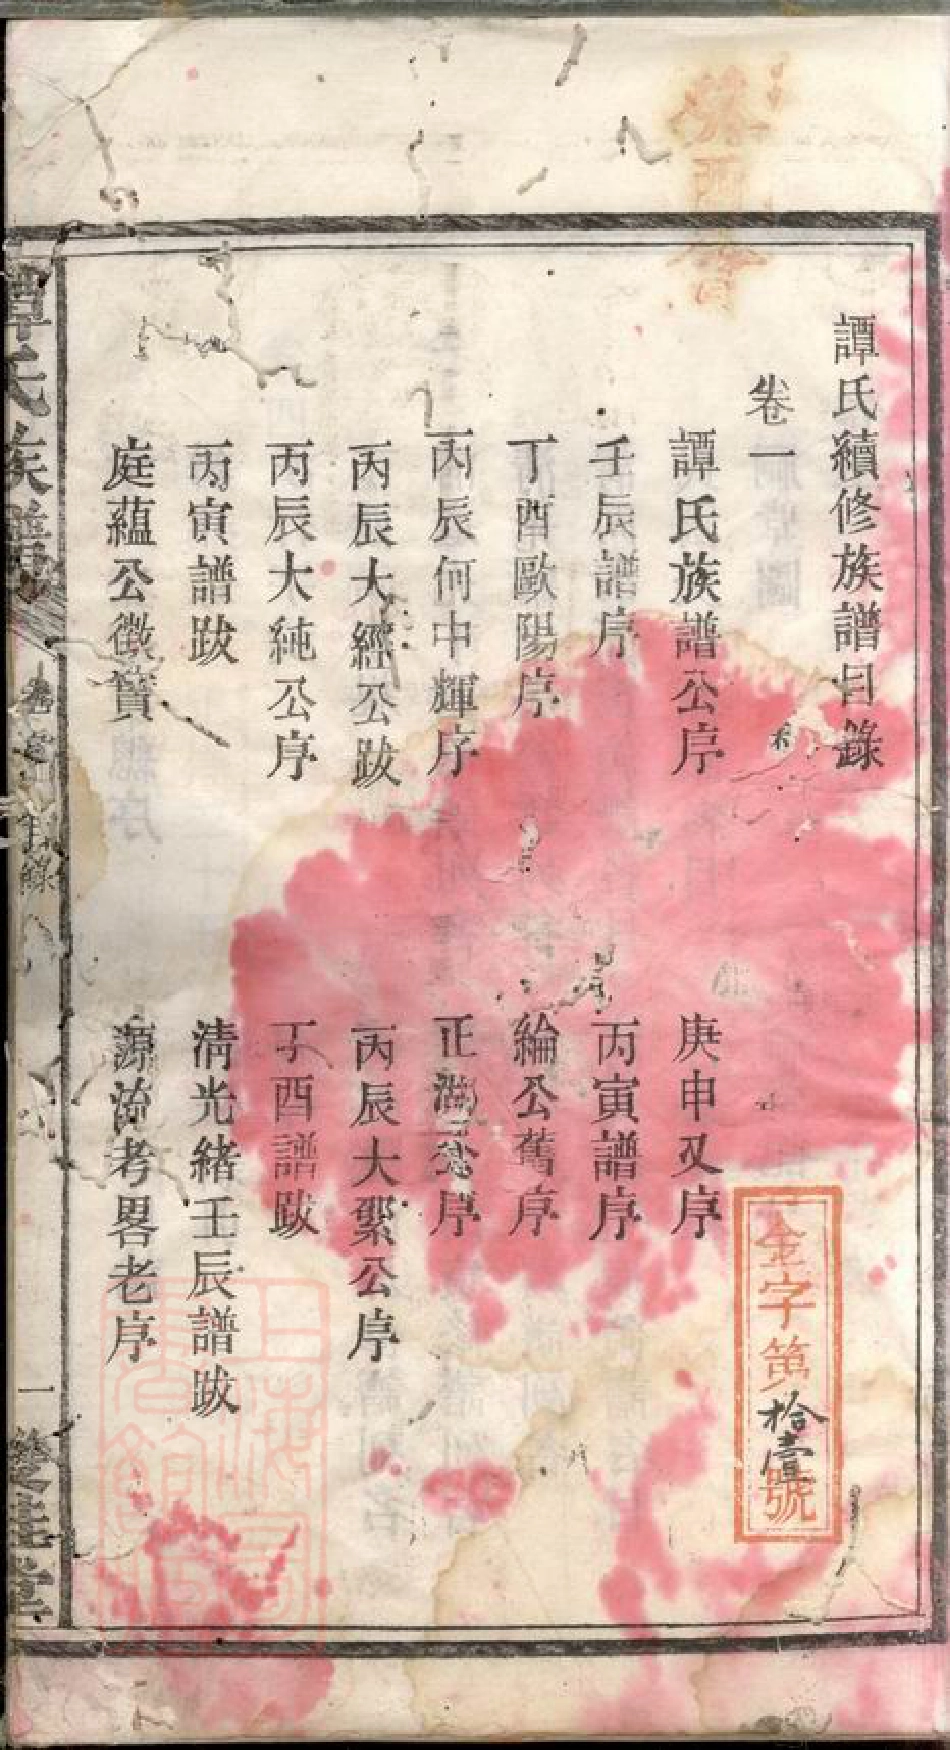 譚氏續修族譜目錄
卷一
譚氏族譜公序
庚申又序
壬辰譜序
丙寅譜序
丁酉歐陽序
綸公舊序
丙辰何中輝序
正序
丙辰大經公跋
丙辰大公序
丙辰大純公序
丁酉譜跋
丙寅譜跋
清光緒壬辰譜跋
庭蘊公徵實
源流考畧老序
譚氏族譜
卷首
目錄
一
雙桂堂
金字第拾壹號
上海圖書館藏